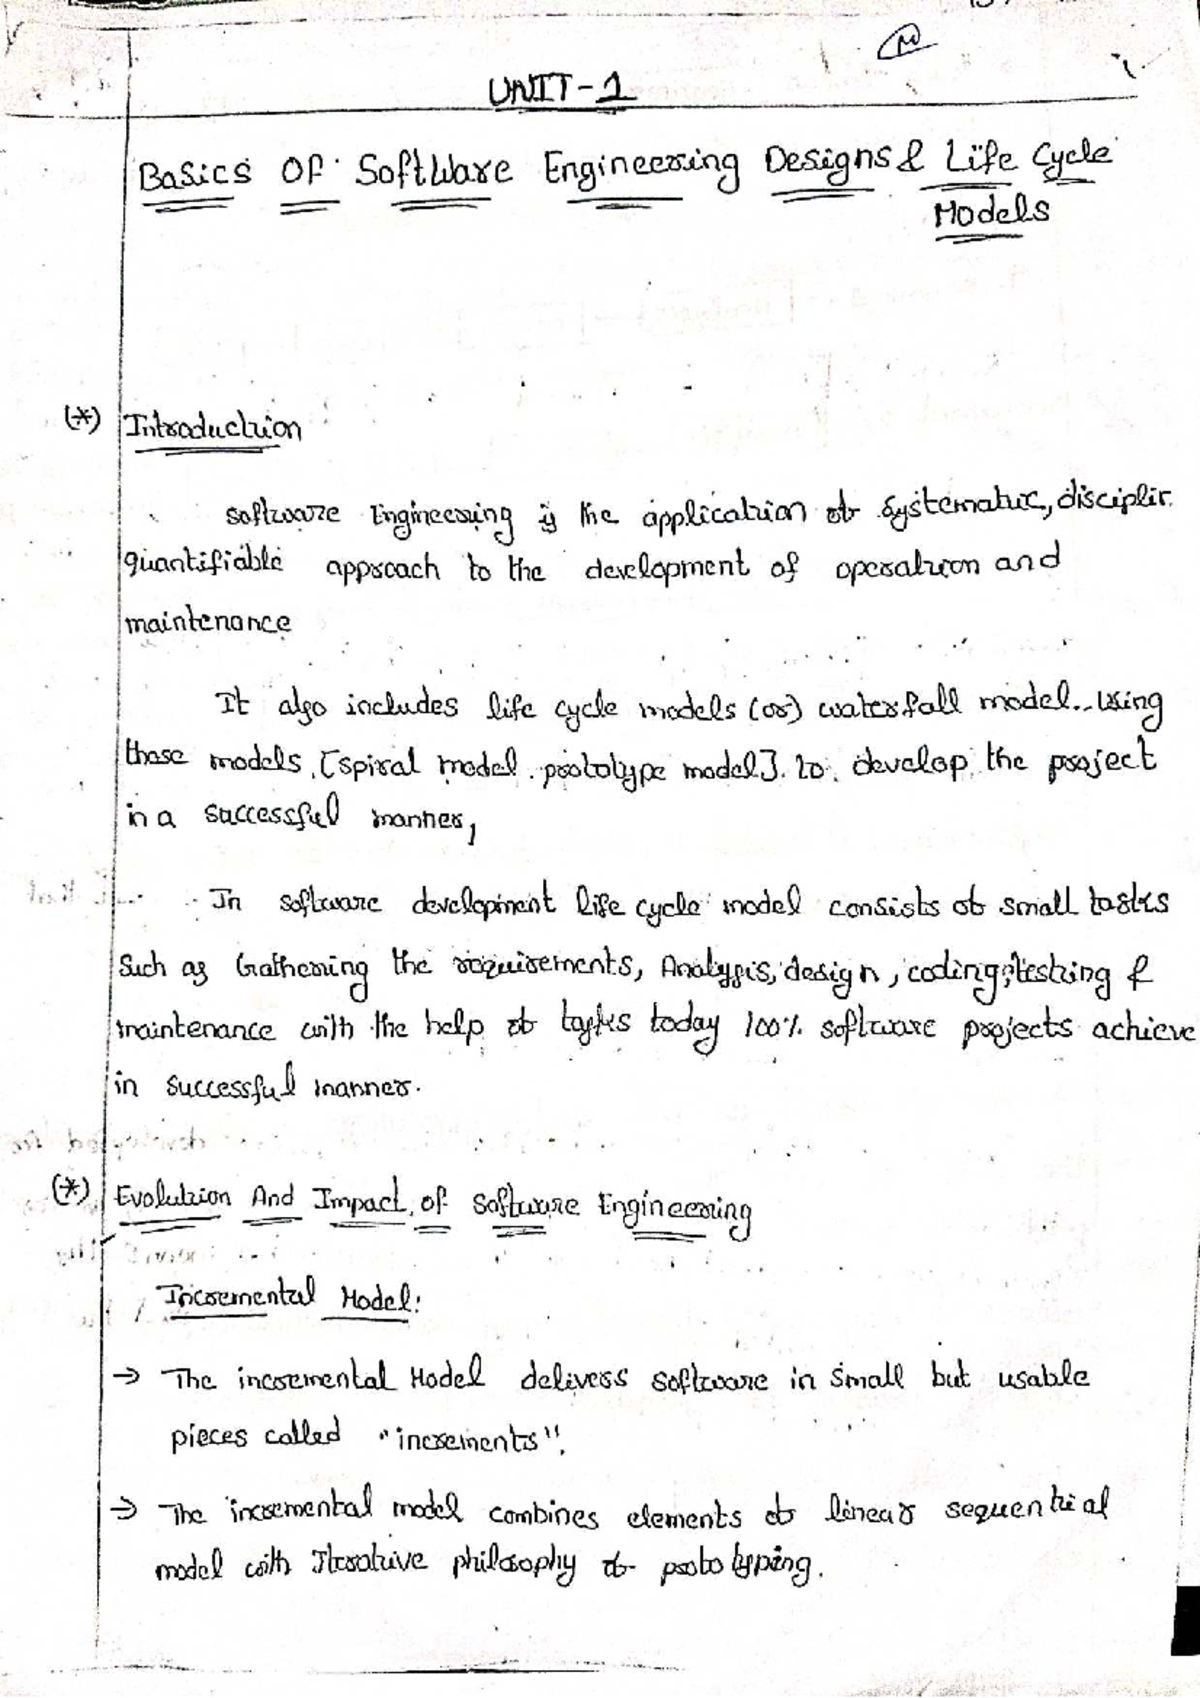 UNIT-1
Basics Of Software Engineering Designs & Life Cycle
Models
(*) Introduction
software Engineering is the application of systematic, disciplin
quantifiable approach to the development of operation and
maintenance
It also includes life cycle models (or) waterfall model.. using
those models, [spiral model. prototype model]. to. develop the project
in a successful manner,
In software development life cycle model consists of small tasks
Such as Gathering the requirements, Analysis, design, coding, testing &
maintenance with the help of tasks today 100% software projects achieve
in successful manner.
(*) Evolution And Impact of Software Engineering
Incremental Model:
→ The incremental Model delivers software in small but usable
pieces called "increments".
→ The incremental model combines elements of linear sequential
model with Iterative philosophy of prototyping.